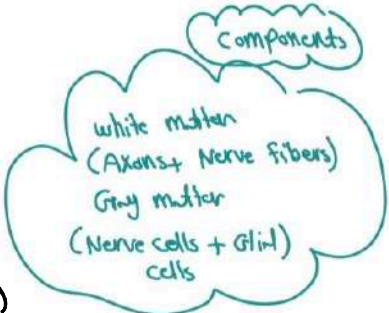 Components
white matter
(Axons + Nerve fibers)
Gray matter
(Nerve cells + Glial)
cells